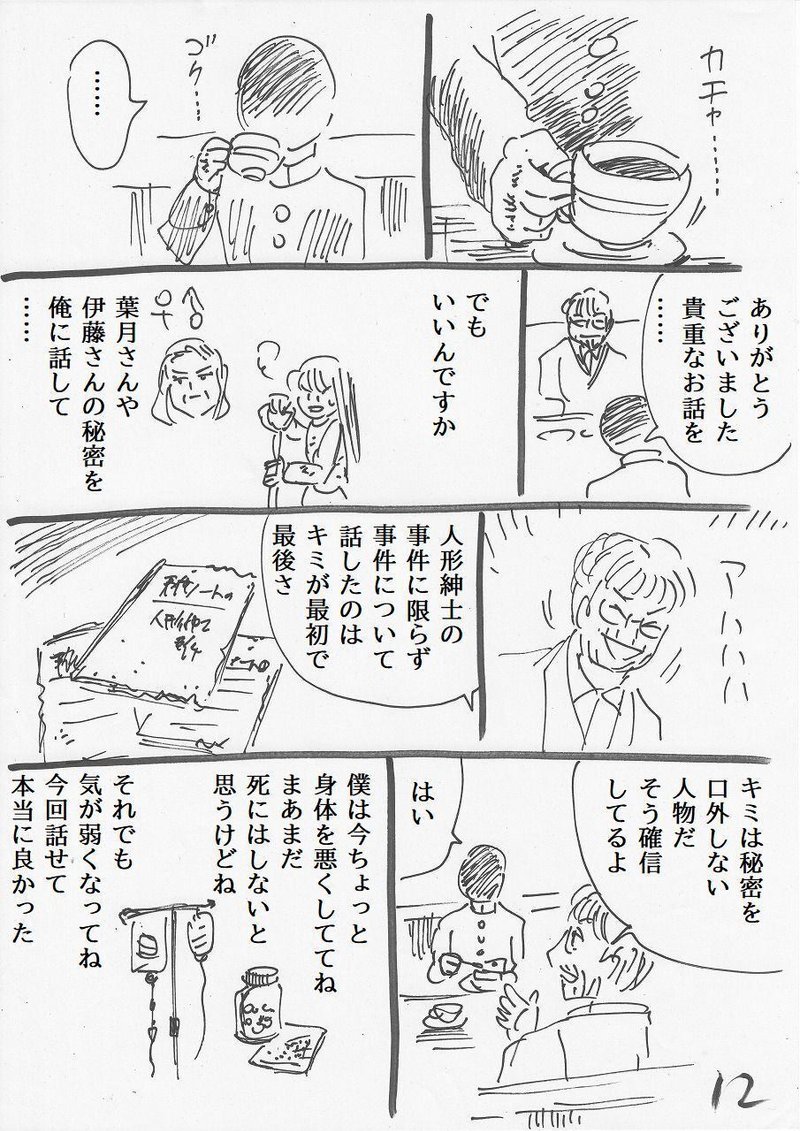 カチャ……
ゴク…
……
ありがとう
ございました
貴重なお話を
……
でも
いいんですか
葉月さんや
伊藤さんの秘密を
俺に話して
……
アハハハ
人形紳士の
事件に限らず
事件について
話したのは
キミが最初で
最後さ
キミは秘密を
口外しない
人物だ
そう確信
してるよ
はい
僕は今ちょっと
身体を悪くしててね
まあまだ
死にはしないと
思うけどね
それでも
気が弱くなってね
今回話せて
本当に良かった
12